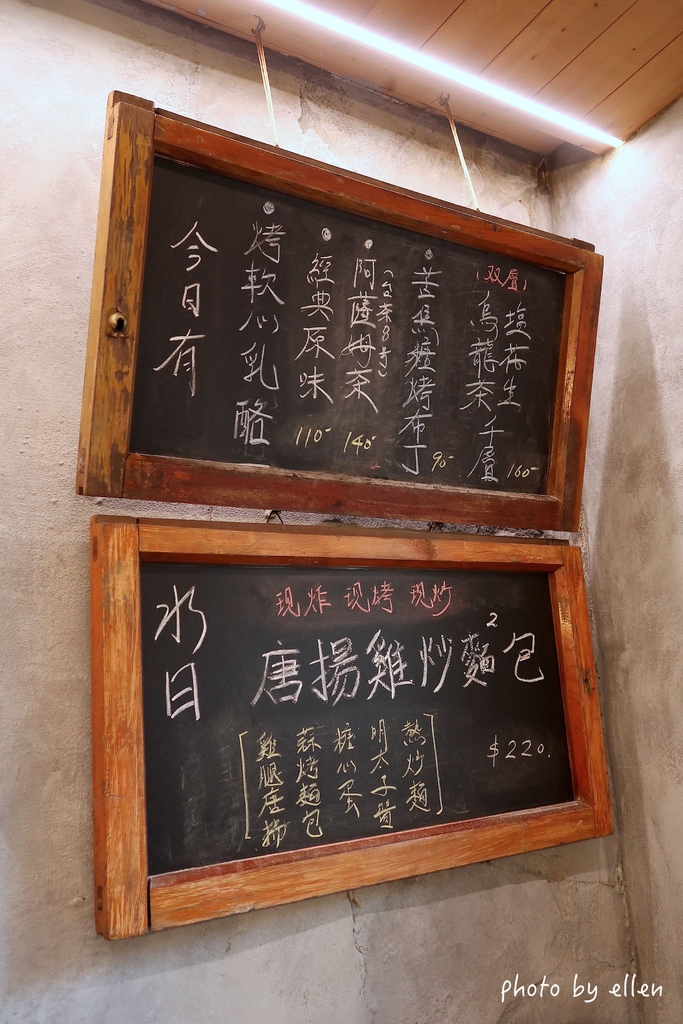 今日有
烤軟心乳酪
經典原味 110-
阿薩姆茶 140-
(台茶8号)
苦焦糖烤布丁 90-
(双層)
烏龍茶千層
塩花生
160-
水日
现炸 现烤 现炒
唐揚雞炒麵2包
$220.
雞腿唐揚
蒜烤麵包
糖心蛋
明太子醬
熱炒麵
photo by ellen